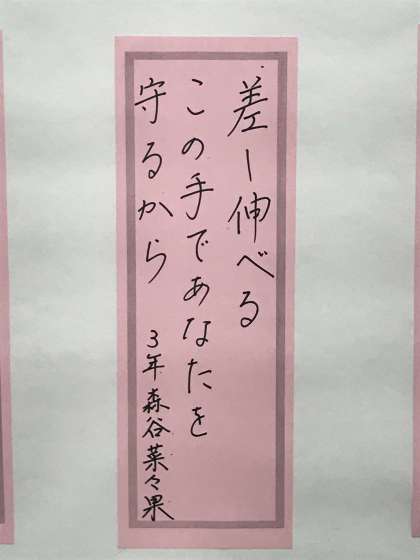 差し伸べる
この手であなたを
守るから
3年 森谷菜々果